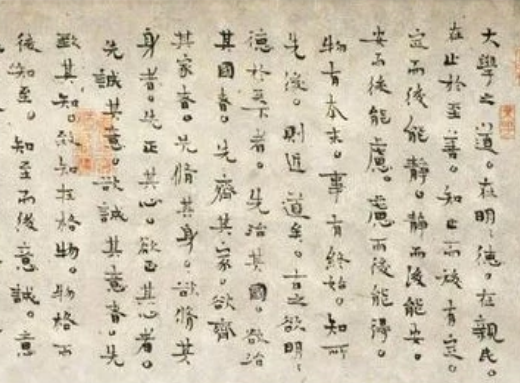 大學之道。在明〻德。在親民。
在止於至善。知止而後有定。
定而後能靜。靜而後能安。
安而後能慮。慮而後能得。
物有本末。事有終始。知所
先後。則近道矣。古之欲明〻
德於天下者。先治其國。欲治
其國者。先齊其家。欲齊
其家者。先脩其身。欲脩其
身者。先正其心。欲正其心者。
先誠其意。欲誠其意者。先
致其知。致知在格物。物格而
後知至。知至而後意誠。意